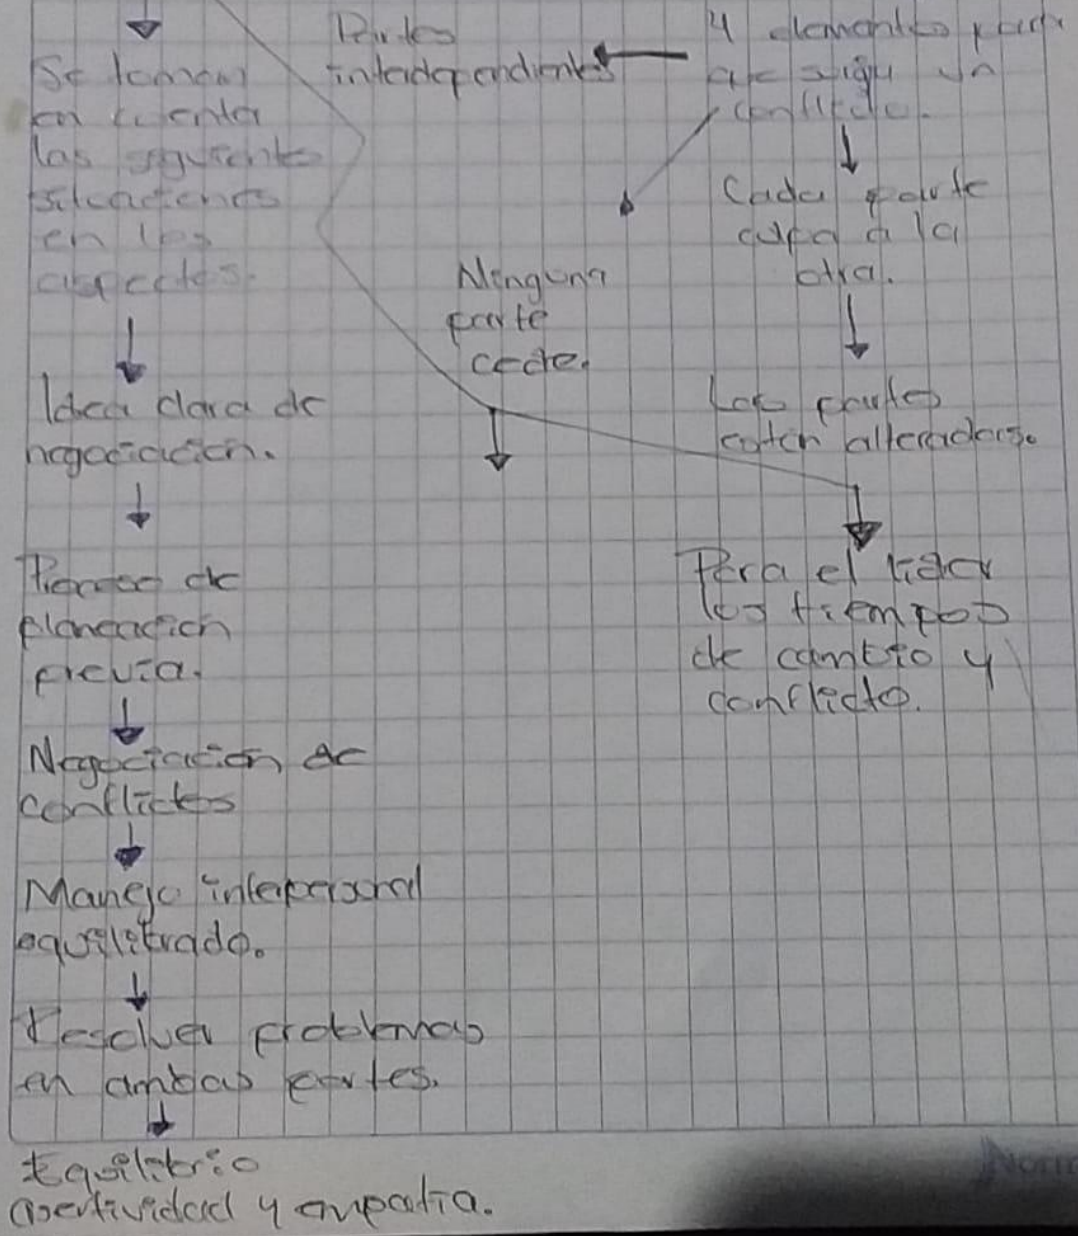 Se toman
en cuenta
las siguiente
situaciones
en los
aspectos.
Idea clara de
negociación.
Proceso de
planeación
previa.
Negociación de
conflictos
Manejo interpersonal
equilibrado.
Resolver problemas
en ambas partes.
Equilibrio
asertividad y empatia.
Partes
interdependientes
Ninguna
parte
cede.
4 elementos para
que siga un
conflicto.
Cada parte
culpa a la
otra.
Las partes
estan alteradas.
Para el lider
los tiempos
de cambio y
conflicto.